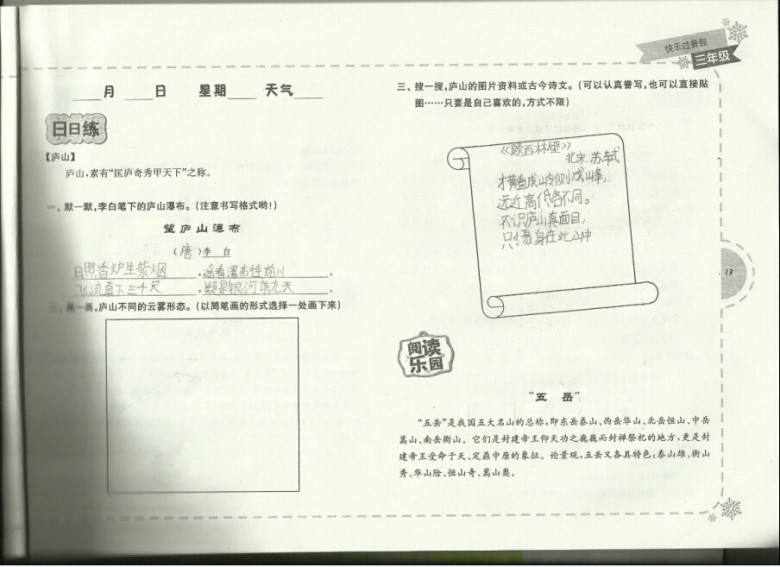 快乐过暑假
三年级
____月____日 星期____天气____
日日练
【庐山】
庐山，素有“匡庐奇秀甲天下”之称。
一、默一默，李白笔下的庐山瀑布。（注意书写格式哟！）
望庐山瀑布
（唐）李 白
日照香炉生紫烟，遥看瀑布挂前川。
飞流直下三千尺，疑是银河落九天。
画一画，庐山不同的云雾形态。（以简笔画的形式选择一处画下来）
三、搜一搜，庐山的图片资料或古今诗文。（可以认真誊写，也可以直接贴
图……只要是自己喜欢的，方式不限）
《题西林壁》
北宋 苏轼
横看成岭侧成峰，
远近高低各不同。
不识庐山真面目，
只缘身在此山中
13
阅读
乐园
“五 岳”
“五岳”是我国五大名山的总称，即东岳泰山、西岳华山、北岳恒山、中岳
嵩山、南岳衡山。它们是封建帝王仰天功之巍巍而封禅祭祀的地方，更是封
建帝王受命于天、定鼎中原的象征。论景观，五岳又各具特色：泰山雄、衡山
秀、华山险、恒山奇、嵩山奥。